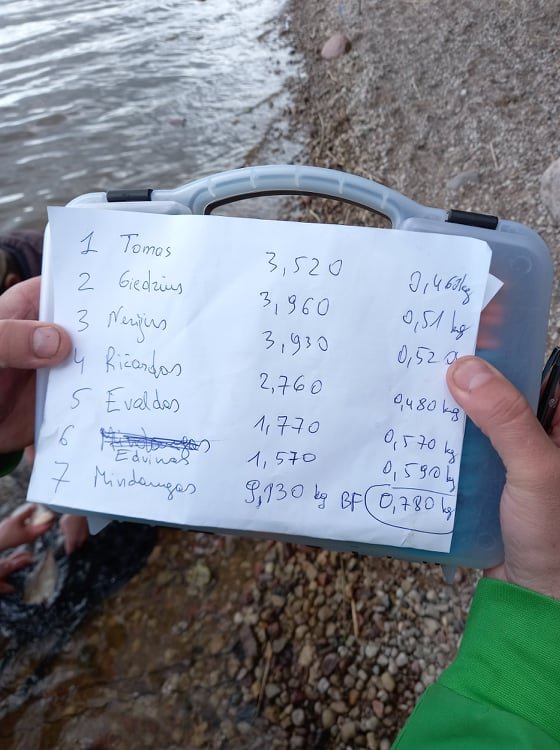 1 Tomas 3,520 0,460kg
2 Giedrius 3,960 0,51 kg
3 Nerijus 3,930 0,520
4 Ričardas 2,760 0,480 kg
5 Evaldas 1,770 0,570 kg
6 Edvinas 1,570 0,590 kg
7 Mindaugas 9,130 kg BF 0,780 kg